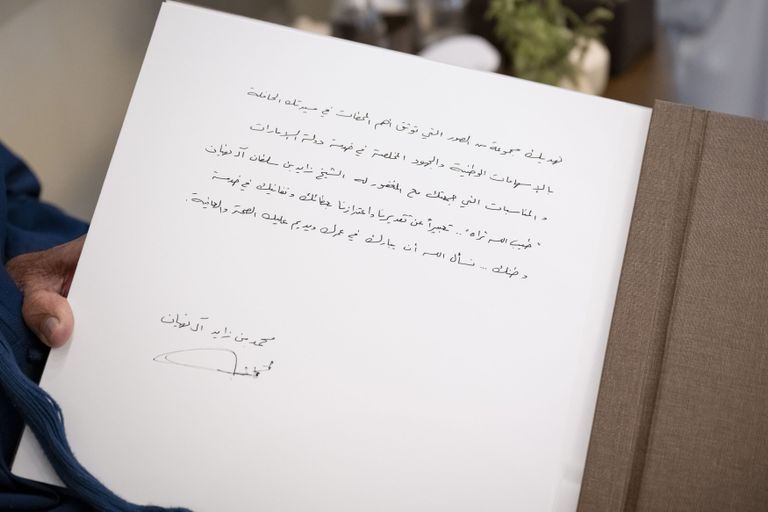 نهديك مجموعة من الصور التي توثق أهم المحطات في مسيرتك الحافلة
بالإسهامات الوطنية والجهود المخلصة في خدمة دولة الإمارات
والمناسبات التي جمعتك مع المغفور له الشيخ زايد بن سلطان آل نهيان
"طيب الله ثراه".. تعبيراً عن تقديرنا واعتزازنا بعطائك وتفانيك في خدمة
وطنك ... نسأل الله أن يبارك في عمرك ويديم عليك الصحة والعافية.
محمد بن زايد آل نهيان